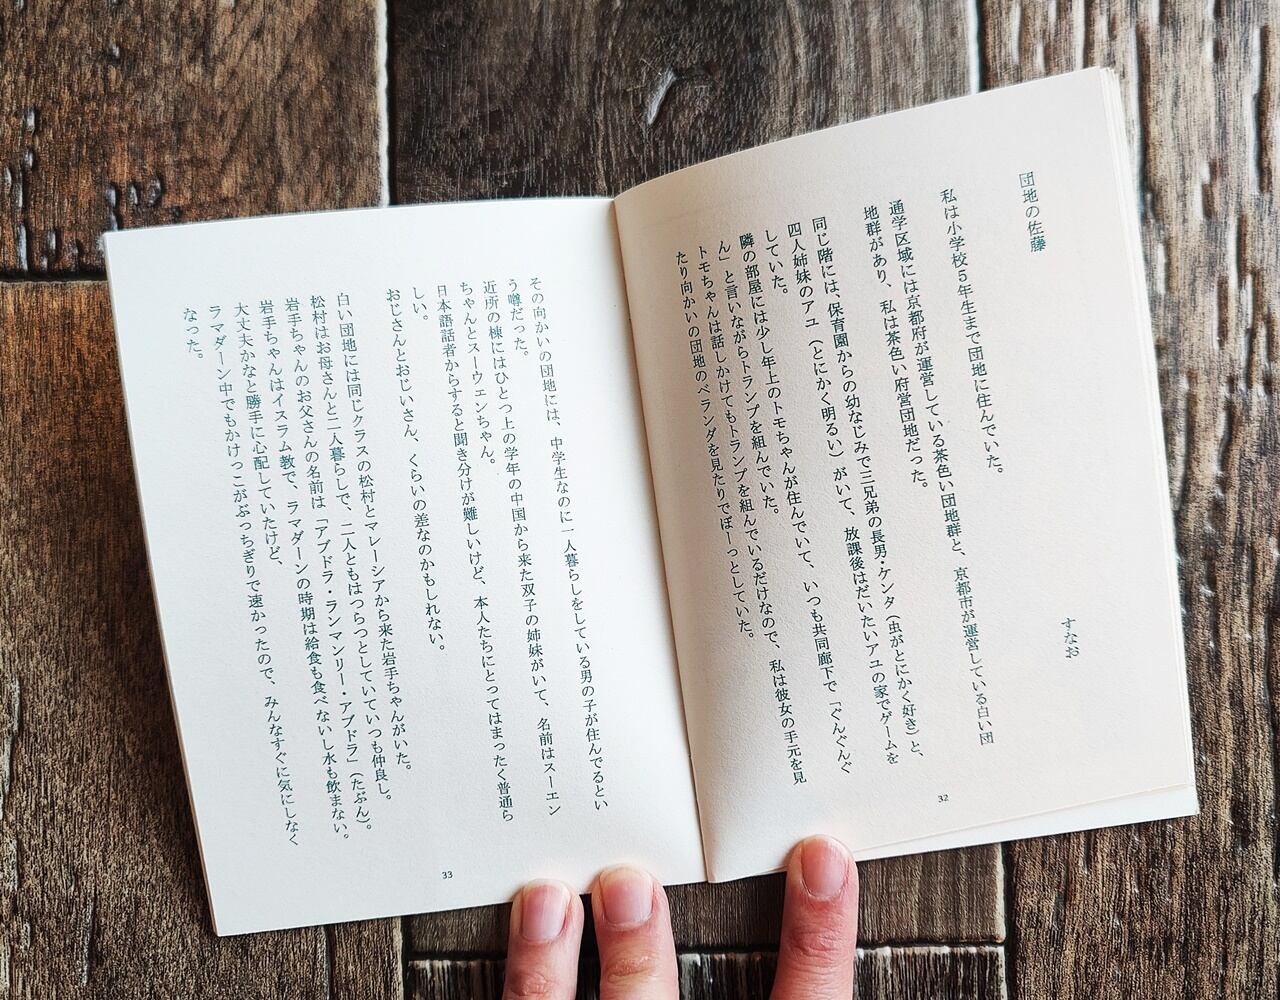 団地の佐藤
すなお
私は小学校5年生まで団地に住んでいた。
通学区域には京都府が運営している茶色い団地群と、京都市が運営している白い団
地群があり、私は茶色い府営団地だった。
同じ階には、保育園からの幼なじみで三兄弟の長男・ケンタ（虫がとにかく好き）と、
四人姉妹のアユ（とにかく明るい）がいて、放課後はだいたいアユの家でゲームを
していた。
隣の部屋には少し年上のトモちゃんが住んでいて、いつも共同廊下で「ぐんぐんぐ
ん」と言いながらトランプを組んでいた。
トモちゃんは話しかけてもトランプを組んでいるだけなので、私は彼女の手元を見
たり向かいの団地のベランダを見たりでぼーっとしていた。
32
その向かいの団地には、中学生なのに一人暮らしをしている男の子が住んでるとい
う噂だった。
近所の棟にはひとつ上の学年の中国から来た双子の姉妹がいて、名前はスーエン
ちゃんとスーウェンちゃん。
日本語話者からすると聞き分けが難しいけど、本人たちにとってはまったく普通ら
しい。
おじさんとおじいさん、くらいの差なのかもしれない。
白い団地には同じクラスの松村とマレーシアから来た岩手ちゃんがいた。
松村はお母さんと二人暮らしで、二人ともはつらつとしていていつも仲良し。
岩手ちゃんのお父さんの名前は「アブドラ・ランマンリー・アブドラ」（たぶん）。
岩手ちゃんはイスラム教で、ラマダーンの時期は給食も食べないし水も飲まない。
大丈夫かなと勝手に心配していたけど、
ラマダーン中でもかけっこがぶっちぎりで速かったので、みんなすぐに気にしなく
なった。
33